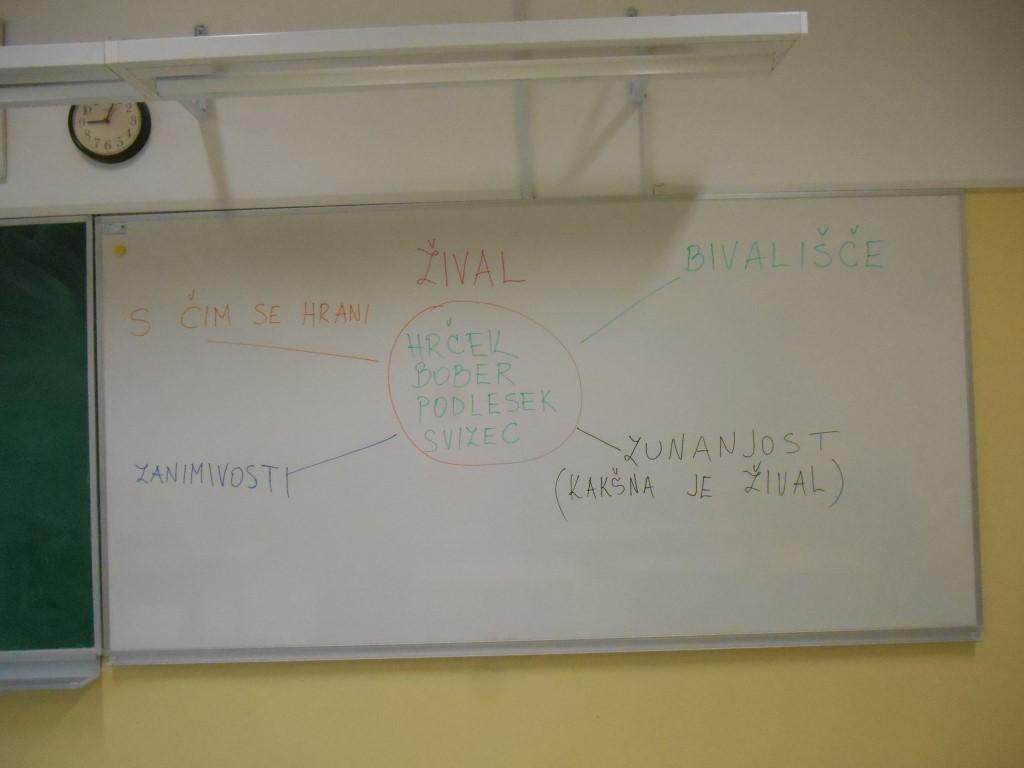 ŽIVAL
BIVALIŠČE
S ČIM SE HRANI
HRČEK
BOBER
PODLESEK
SVIZEC
ZUNANJOST
(KAKŠNA JE ŽIVAL)
ZANIMIVOSTI